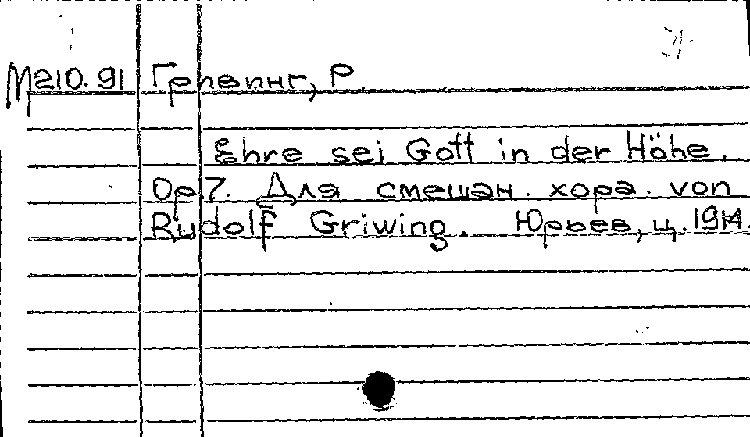 М210.91 Гривинг, Р.
Ehre sei Gott in der Höhe.
Op 7. Для смешан. хора. von
Rudolf Griwing. Юрьев, ц. 1914.